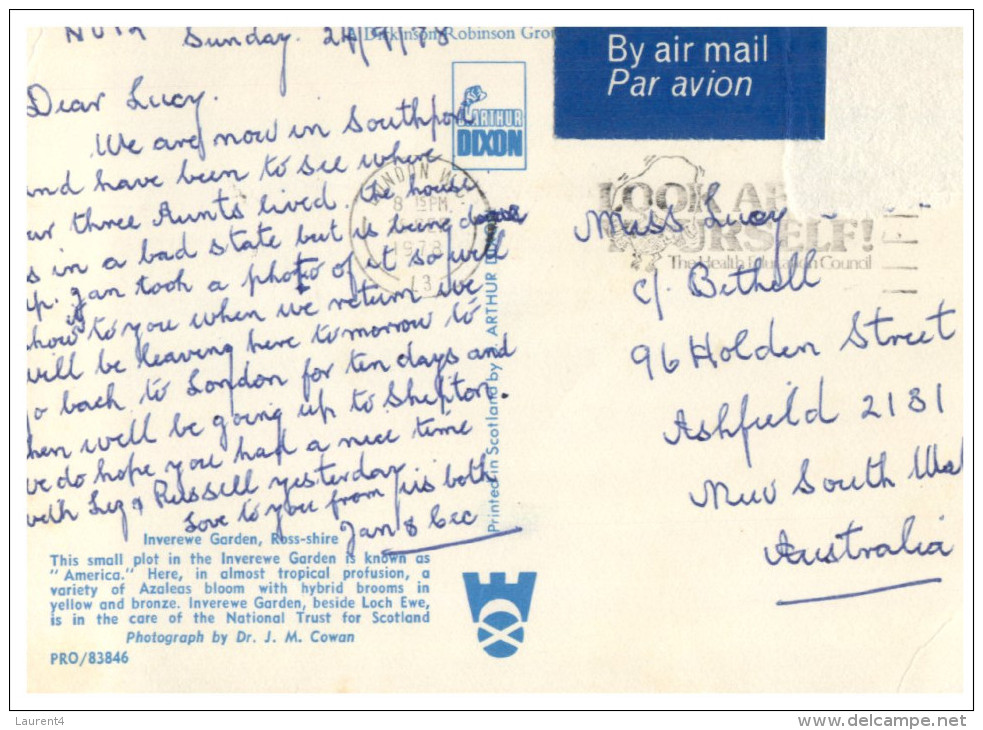 Sunday. 24/9/78
A Dickinson Robinson Grou
By air mail
Par avion
Dear Lucy.
We are now in Southport
and have been to see where
our three Aunts lived. the house
is in a bad state but is being done
up. Jan took a photo of it so will
show to you when we return we
will be leaving here tomorrow to
go back to London for ten days and
then will be going up to Shepton.
we do hope you had a nice time
with Leg & Russell yesterday
Love to you from us both
Jan & Cec
ARTHUR
DIXON
LONDON W.C.
8 15PM
1978
13
LOOK AF
YOURSELF!
The Health Education Council
Miss Lucy
c/. Bethell
96 Holden Street
Ashfield 2131
New South Wal
Australia
Printed in Scotland by ARTHUR D
Inverewe Garden, Ross-shire
This small plot in the Inverewe Garden is known as
"America." Here, in almost tropical profusion, a
variety of Azaleas bloom with hybrid brooms in
yellow and bronze. Inverewe Garden, beside Loch Ewe,
is in the care of the National Trust for Scotland
Photograph by Dr. J. M. Cowan
PRO/83846
Laurent4
www.delcampe.net